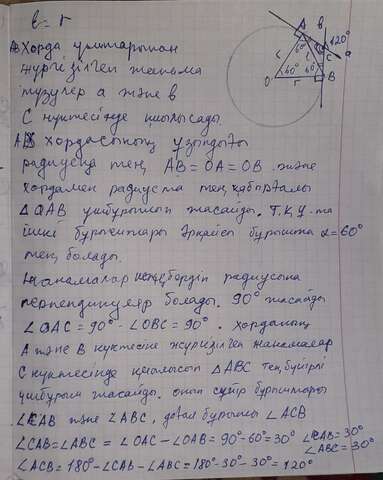 b = r
АВ Хорда ұштарынан
жүргізілген жанама
түзулер а және b
С нүктесінде қиылысады.
АВ хордасының ұзындығы
радиусқа тең, АВ = ОА = ОВ және
хордамен радиуста тең қабырғалы
△ОАВ үшбұрышын жасайды. Т.Қ.Ү-та
ішкі бұрыштары әрқайсы бұрышта α = 60°
тең болады.
Жанамалар шеңбердің радиусына
перпендикуляр болады. 90° жасайды
∠ОАС = 90° - ∠ОВС = 90°. хорданың
А және В нүктесіне жүргізілген жанамалар
С нүктесінде қиылысып △АВС тең бүйірлі
үшбұрыш жасайды. оның сүйір бұрыштары
∠САВ және ∠АВС, доғал бұрышы ∠АСВ
∠САВ = ∠АВС = ∠ОАС - ∠ОАВ = 90° - 60° = 30° ∠САВ = 30°
∠АВС = 30°
∠АСВ = 180° - ∠САВ - ∠АВС = 180° - 30° - 30° = 120°
А
b
120°
60°
С
а
r
О
60°
60°
r
В